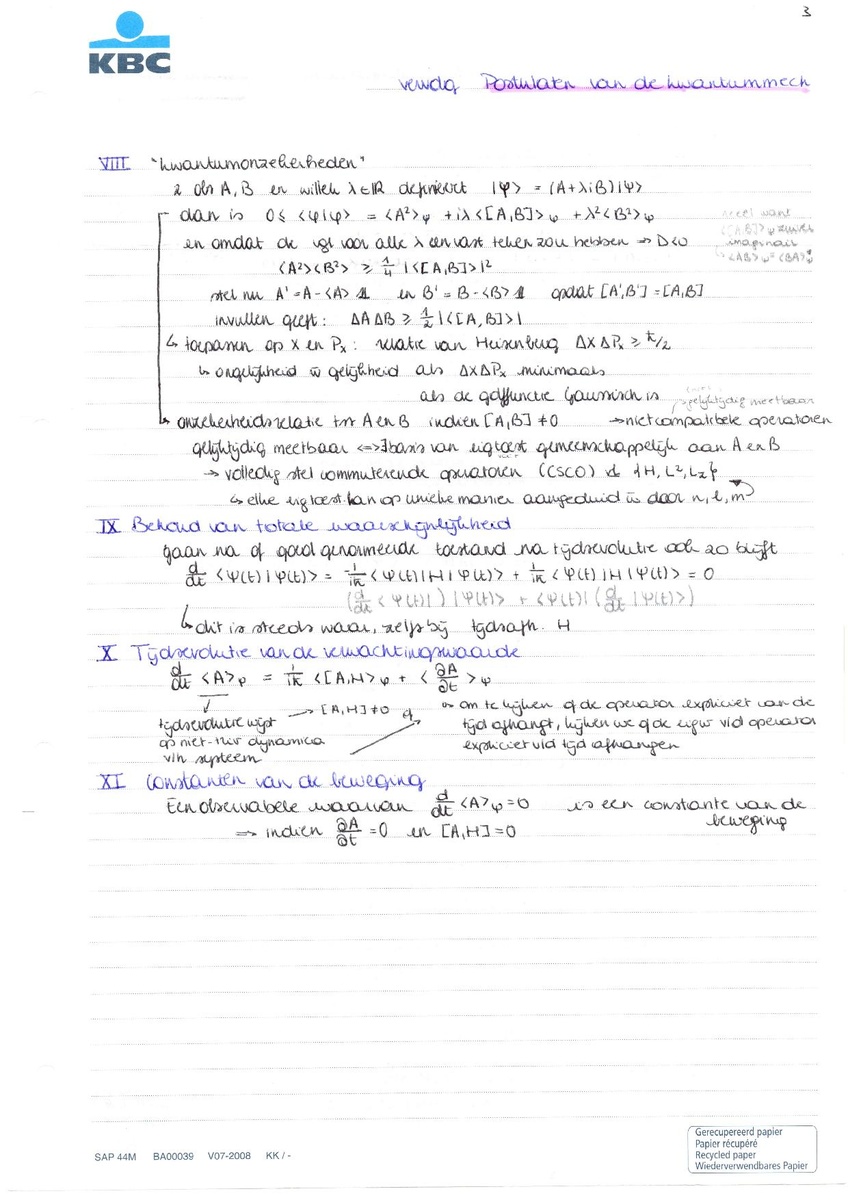 3
KBC
vervolg Postulaten van de kwantummech
VIII "kwantumonzekerheden"
2 obs A, B en willek λ∈ℝ definieert |φ> = (A+λiB)|ψ>
dan is 0≤ <φ|φ> = <A²>ψ + iλ<[A,B]>ψ + λ²<B²>ψ
reëel want <[A,B]>ψ zuiver imaginair
↳ <AB>ψ = <BA>ψ*
en omdat de vgl voor alle λ een vast teken zou hebben ⇒ D<0
<A²><B²> ≥ 1/4 |<[A,B]>|²
stel nu A' = A-<A> 𝟙 en B' = B-<B> 𝟙 opdat [A',B'] = [A,B]
invullen geeft: ΔAΔB ≥ 1/2 |<[A,B]>|
↳ toepassen op X en Pₓ: relatie van Heisenberg ΔXΔPₓ ≥ ħ/2
↳ ongelijkheid w gelijkheid als ΔXΔPₓ minimaal is
als de golffunctie Gaussisch is
gelijktijdig meetbaar
↳ onzekerheidsrelatie tss A en B indien [A,B] ≠0 → niet compatibele operatoren
gelijktijdig meetbaar <=> ∃ basis van eigtoest gemeenschappelijk aan A en B
→ volledig stel commuterende operatoren (CSCO) vb {H, L², Lz}
↳ elke eigtoest. kan op unieke manier aangeduid w door n, l, m
IX Behoud van totale waarschijnlijkheid
gaan na of goed genormeerde toestand na tijdsevolutie ook zo blijft
d/dt <Ψ(t)|Ψ(t)> = -1/iħ <Ψ(t)|H|Ψ(t)> + 1/iħ <Ψ(t)|H|Ψ(t)> = 0
(d/dt <Ψ(t)|) |Ψ(t)> + <Ψ(t)| (d/dt |Ψ(t)>)
↳ dit is steeds waar, zelfs bij tijdsafh. H
X Tijdsevolutie van de verwachtingswaarde
d/dt <A>ψ = 1/iħ <[A,H]>ψ + <∂A/∂t>ψ
tijdsevolutie wijst op niet-triv dynamica v/h systeem
→ [A,H] ≠0 of
↳ om te kijken of de operator expliciet van de tijd afhangt, kijken we of de eigw v/d operator expliciet v/d tijd afhangen
XI Constanten van de beweging
Een observabele waarvan d/dt <A>ψ =0 is een constante van de beweging
⇒ indien ∂A/∂t =0 en [A,H] =0
SAP 44M BA00039 V07-2008 KK / -
Gerecupereerd papier
Papier récupéré
Recycled paper
Wiederverwendbares Papier